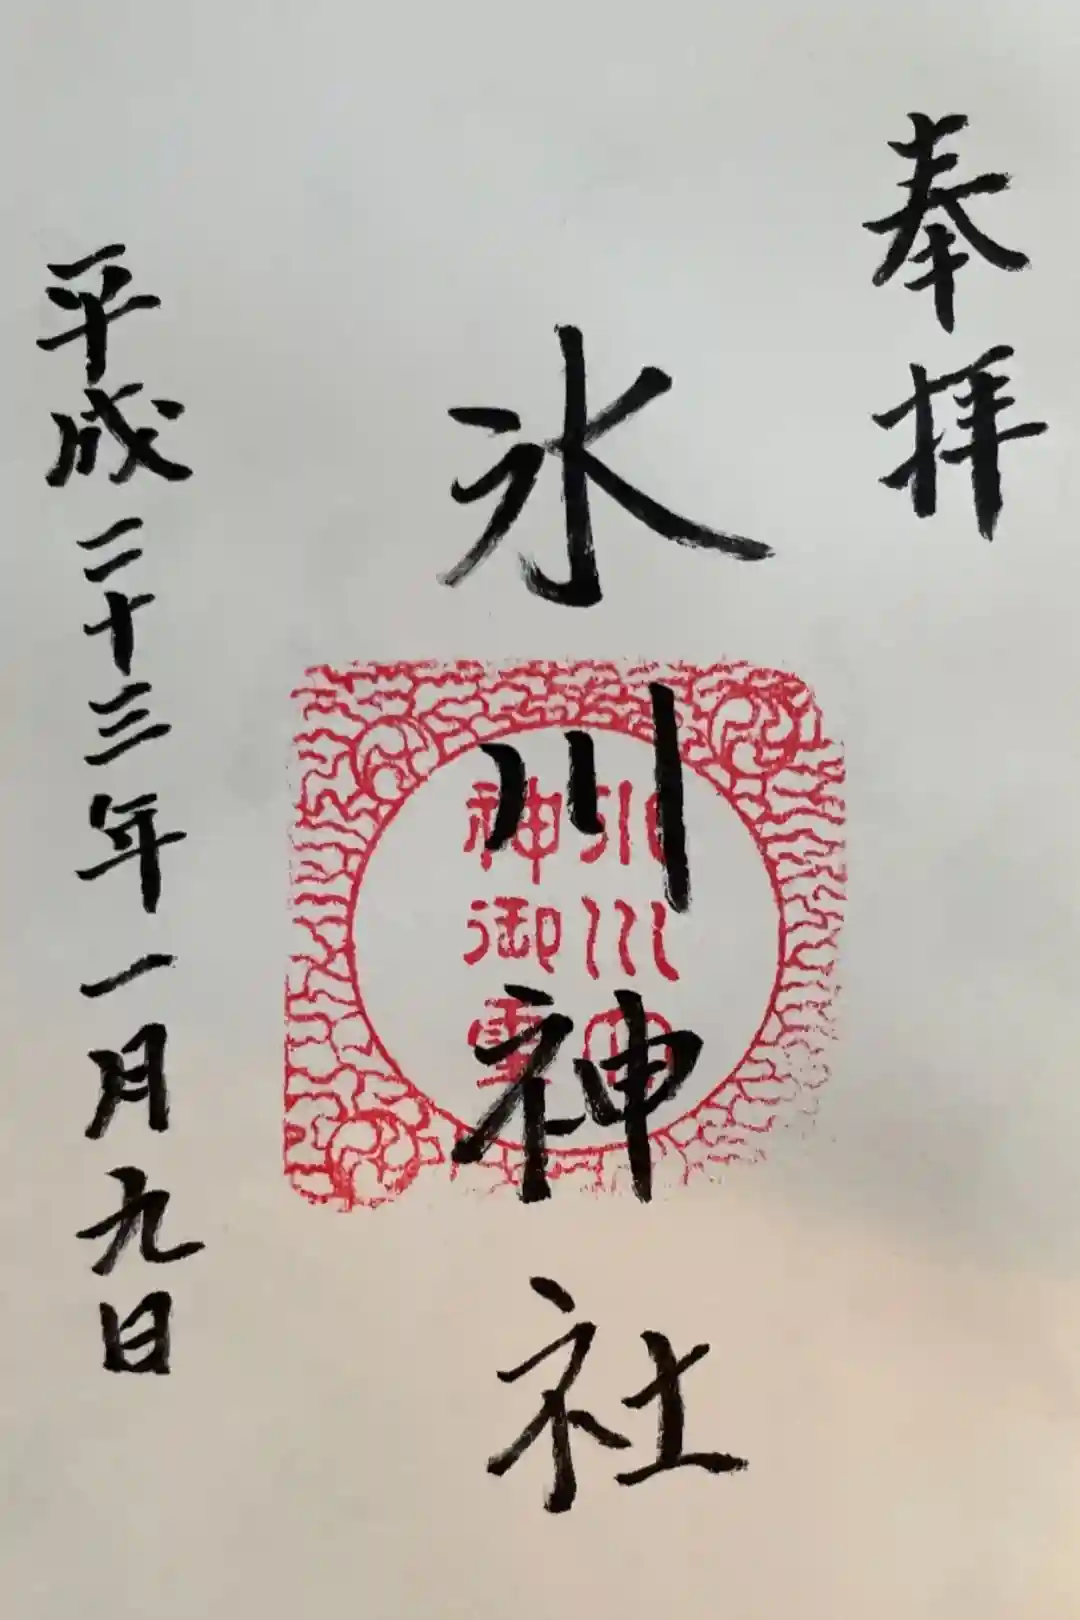 奉拝
氷川神社
氷川
神御霊
平成二十三年一月九日